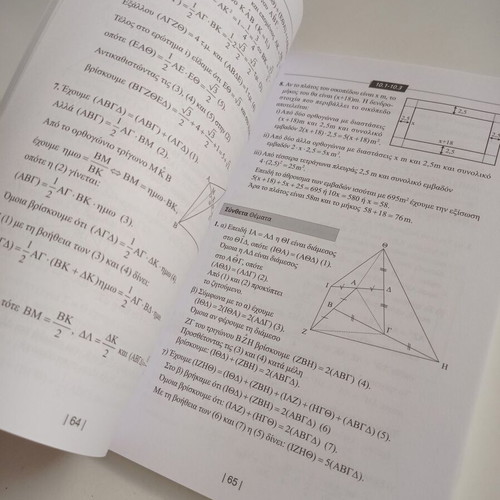 (ΑΓΖΘ) = 4 τ.μ. και (ΑΒΔΕ) = 1
Τέλος στο ερώτημα i) είδαμε ότι
οπότε (ΕΑΘ) = 1/2 ΑΕ · ΕΘ = √3/2 (5).
Αντικαθιστώντας τις (3), (4) και (5) στην (2)
βρίσκουμε (ΒΓΖΘΕΔ) = √3/2 + 4
7. Έχουμε (ΑΒΓΔ) = (ΑΒΓ) + (ΑΓΔ) (1).
Αλλά (ΑΒΓ) = 1/2 ΑΓ · ΒΜ (2).
Από το ορθογώνιο τρίγωνο ΜΚΒ
έχουμε ημω = ΒΜ/ΒΚ ⇔ ΒΜ = ημω · ΒΚ,
οπότε η (2) γίνεται:
(ΑΒΓ) = 1/2 ΑΓ · ΒΚ · ημω (3).
Όμοια βρίσκουμε ότι (ΑΓΔ) = 1/2 ΑΓ · ΔΚ · ημω
(1) με τη βοήθεια των (3) και (4) δίνει:
= 1/2 ΑΓ · (ΒΚ + ΔΚ)ημω = 1/2 ΑΓ · ΒΔ · ημω
τότε ΒΜ = ΒΚ/2, ΔΛ = ΔΚ/2 και
Β
| 64 |
10.1-10.3
8. Αν το πλάτος του οικοπέδου είναι x m, το
μήκος του θα είναι (x+18)m. Η δενδρο-
στοιχία που περιβάλλει το οικόπεδο
αποτελείται:
i) Από δύο ορθογώνια με διαστάσεις
(x+18)m και 2,5m και συνολικό
εμβαδόν 2(x+18) · 2,5 = 5(x+18)m².
ii) Από άλλα δύο ορθογώνια με διαστάσεις x m και 2,5m και συνολικό
εμβαδόν 2 · x · 2,5 = 5x m².
iii) Από τέσσερα τετράγωνα πλευράς 2,5 m και συνολικό εμβαδόν
4 · (2,5)² = 25m².
Επειδή το άθροισμα των εμβαδών ισούται με 695m² έχουμε την εξίσωση
5(x+18) + 5x + 25 = 695 ή 10x = 580 ή x = 58.
Άρα το πλάτος είναι 58m και το μήκος 58 + 18 = 76 m.
2,5
x+18
2,5
Σύνθετα Θέματα
1. α) Επειδή ΙΑ = ΑΔ η ΘΙ είναι διάμεσος
στο ΘΙΔ, οπότε (ΙΘΑ) = (ΑΘΔ) (1).
Όμοια η ΑΔ είναι διάμεσος
στο ΑΘΓ, οπότε
(ΑΘΔ) = (ΑΔΓ) (2).
Από (1) και (2) προκύπτει
το ζητούμενο.
β) Σύμφωνα με το α) έχουμε
(ΙΘΔ) = 2(ΙΘΑ) = 2(ΑΔΓ) (3).
Όμοια αν φέρουμε τη διάμεσο
ΖΓ του τριγώνου ΒΖΗ βρίσκουμε (ΖΒΗ) = 2(ΑΒΓ) (4).
Προσθέτοντας τις (3) και (4) κατά μέλη
βρίσκουμε: (ΙΘΔ) + (ΖΒΗ) = 2(ΑΒΓΔ).
γ) Έχουμε (ΙΖΗΘ) = (ΙΘΔ) + (ΖΒΗ) + (ΙΑΖ) + (ΗΓΘ) + (ΑΒΓΔ) (5).
Στο β) βρήκαμε ότι (ΙΘΔ) + (ΖΒΗ) = 2(ΑΒΓΔ) (6)
Όμοια βρίσκουμε ότι: (ΙΑΖ) + (ΗΓΘ) = 2(ΑΒΓΔ) (7).
Με τη βοήθεια των (6) και (7) η (5) δίνει: (ΙΖΗΘ) = 5(ΑΒΓΔ).
Θ
Ι
Α
Δ
Β
Γ
Ζ
Η
| 65 |